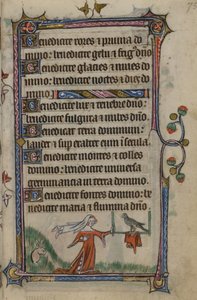 Benedicite rores et pruina do
mino: benedicite gelu et frig' dño
Benedicite glacies et niues do
mino: benedicite noctes et dies do
mino
Benedicite lux et tenebre dño:
benedicite fulgura et nubes dño
Benedicat terra dominum:
laudet et sup exaltet eum i secula
Benedicite montes et colles
domino: benedicite uniuersa
germinancia in terra domino
Benedicite fontes domino: be
nedicite maria et flumina dño